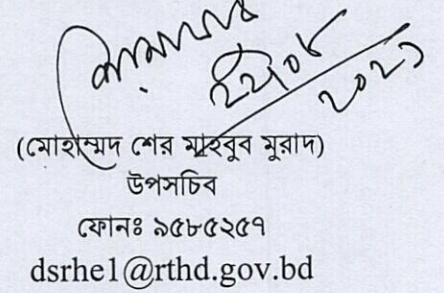 ২২/০৮
২০২১
(মোহাম্মদ শের মাহবুব মুরাদ)
উপসচিব
ফোনঃ ৯৫৮৫২৫৭
dsrhe1@rthd.gov.bd